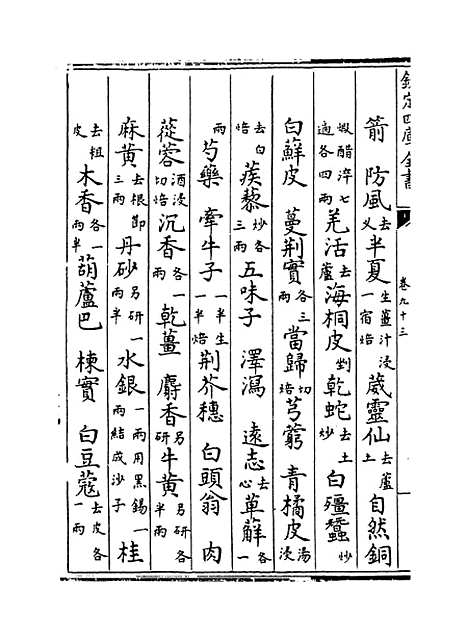 欽定四庫全書 卷九十三
箭 防風去乂 半夏生薑汁浸一宿焙 葳靈仙去蘆土 自然銅
煆醋淬七適各四兩 羌活去蘆 海桐皮剉 乾蛇去土炒 白殭蠶炒
白蘚皮 蔓荆實各三兩 當歸切焙 芎藭 青橘皮湯浸
去白焙 蒺藜炒各三兩 五味子 澤瀉 逺志去心 萆薢各一
兩 芍藥 牽牛子一半生一半焙 荆芥穗 白頭翁 肉
蓯蓉酒浸切焙 沉香各一兩 乾薑 麝香另研 牛黄另研各半兩
麻黄去根節三兩 丹砂另研一兩半 水銀一兩用黑錫一兩結成沙子 桂
去粗皮 木香各一兩半 葫蘆巴 楝實 白豆蔻去皮各一兩